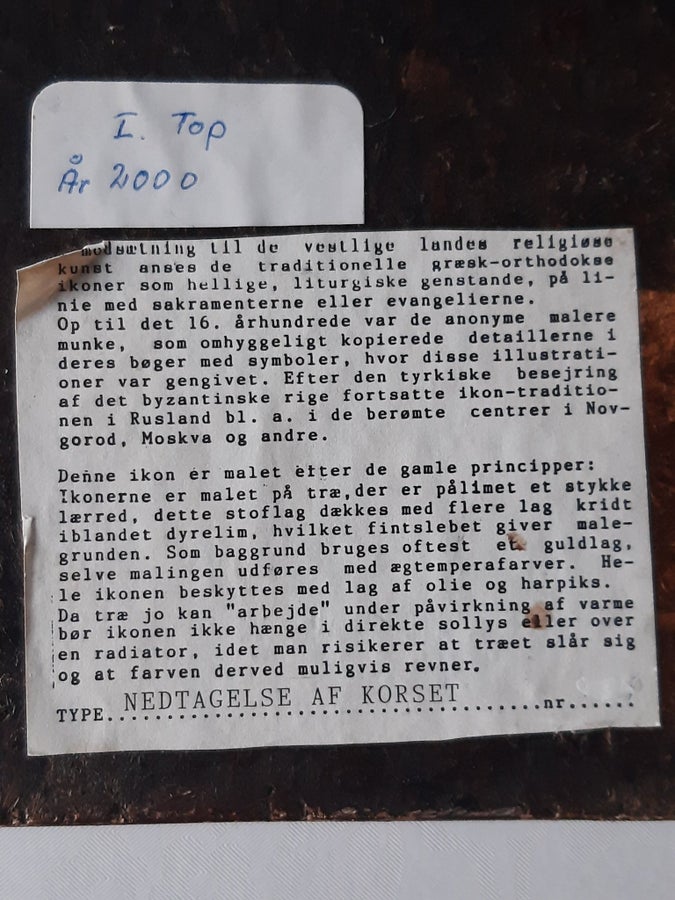 I. Top
År 2000
modsætning til de vestlige landes religiøse
kunst anses de traditionelle græsk-orthodokse
ikoner som hellige, liturgiske genstande, på li-
nie med sakramenterne eller evangelierne.
Op til det 16. århundrede var de anonyme malere
munke, som omhyggeligt kopierede detaillerne i
deres bøger med symboler, hvor disse illustrati-
oner var gengivet. Efter den tyrkiske besejring
af det byzantinske rige fortsatte ikon-traditio-
nen i Rusland bl. a. i de berømte centrer i Nov-
gorod, Moskva og andre.
Denne ikon er malet efter de gamle principper:
Ikonerne er malet på træ,der er pålimet et stykke
lærred, dette stoflag dækkes med flere lag kridt
iblandet dyrelim, hvilket fintslebet giver male-
grunden. Som baggrund bruges oftest et guldlag,
selve malingen udføres med ægtemperafarver. He-
le ikonen beskyttes med lag af olie og harpiks.
Da træ jo kan "arbejde" under påvirkning af varme
bør ikonen ikke hænge i direkte sollys eller over
en radiator, idet man risikerer at træet slår sig
og at farven derved muligvis revner.
TYPE. NEDTAGELSE AF KORSET nr......